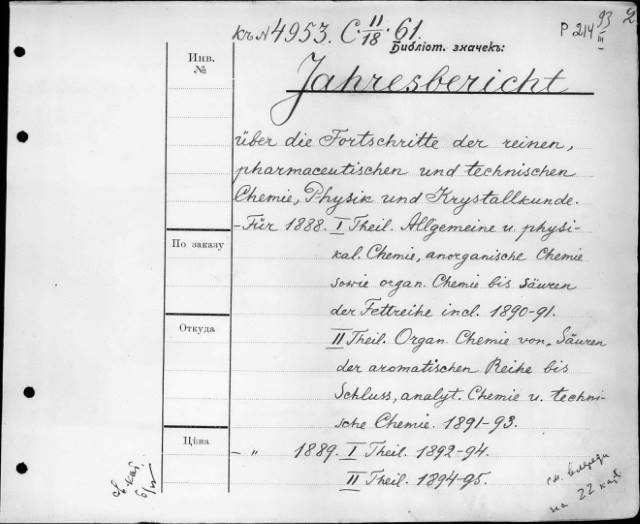 Къ N 4953. C. 11/18. 61.
P 214 93/III 2
Библіот. значекъ:
Инв. №
Jahresbericht
über die Fortschritte der reinen,
pharmaceutischen und technischen
Chemie, Physik und Krystallkunde.
- Für 1888. I Theil. Allgemeine u. physi-
По заказу
kal. Chemie, anorganische Chemie
sowie organ. Chemie bis Säuren
der Fettreihe incl. 1890-91.
Откуда
II Theil. Organ. Chemie von „Säuren
der aromatischen Reihe bis
Schluss, analyt. Chemie u. techni-
sche Chemie. 1891-93.
Цѣна
- „ 1889. I Theil. 1892-94.
II Theil. 1894-95.
см. впереди
на 22 каб.